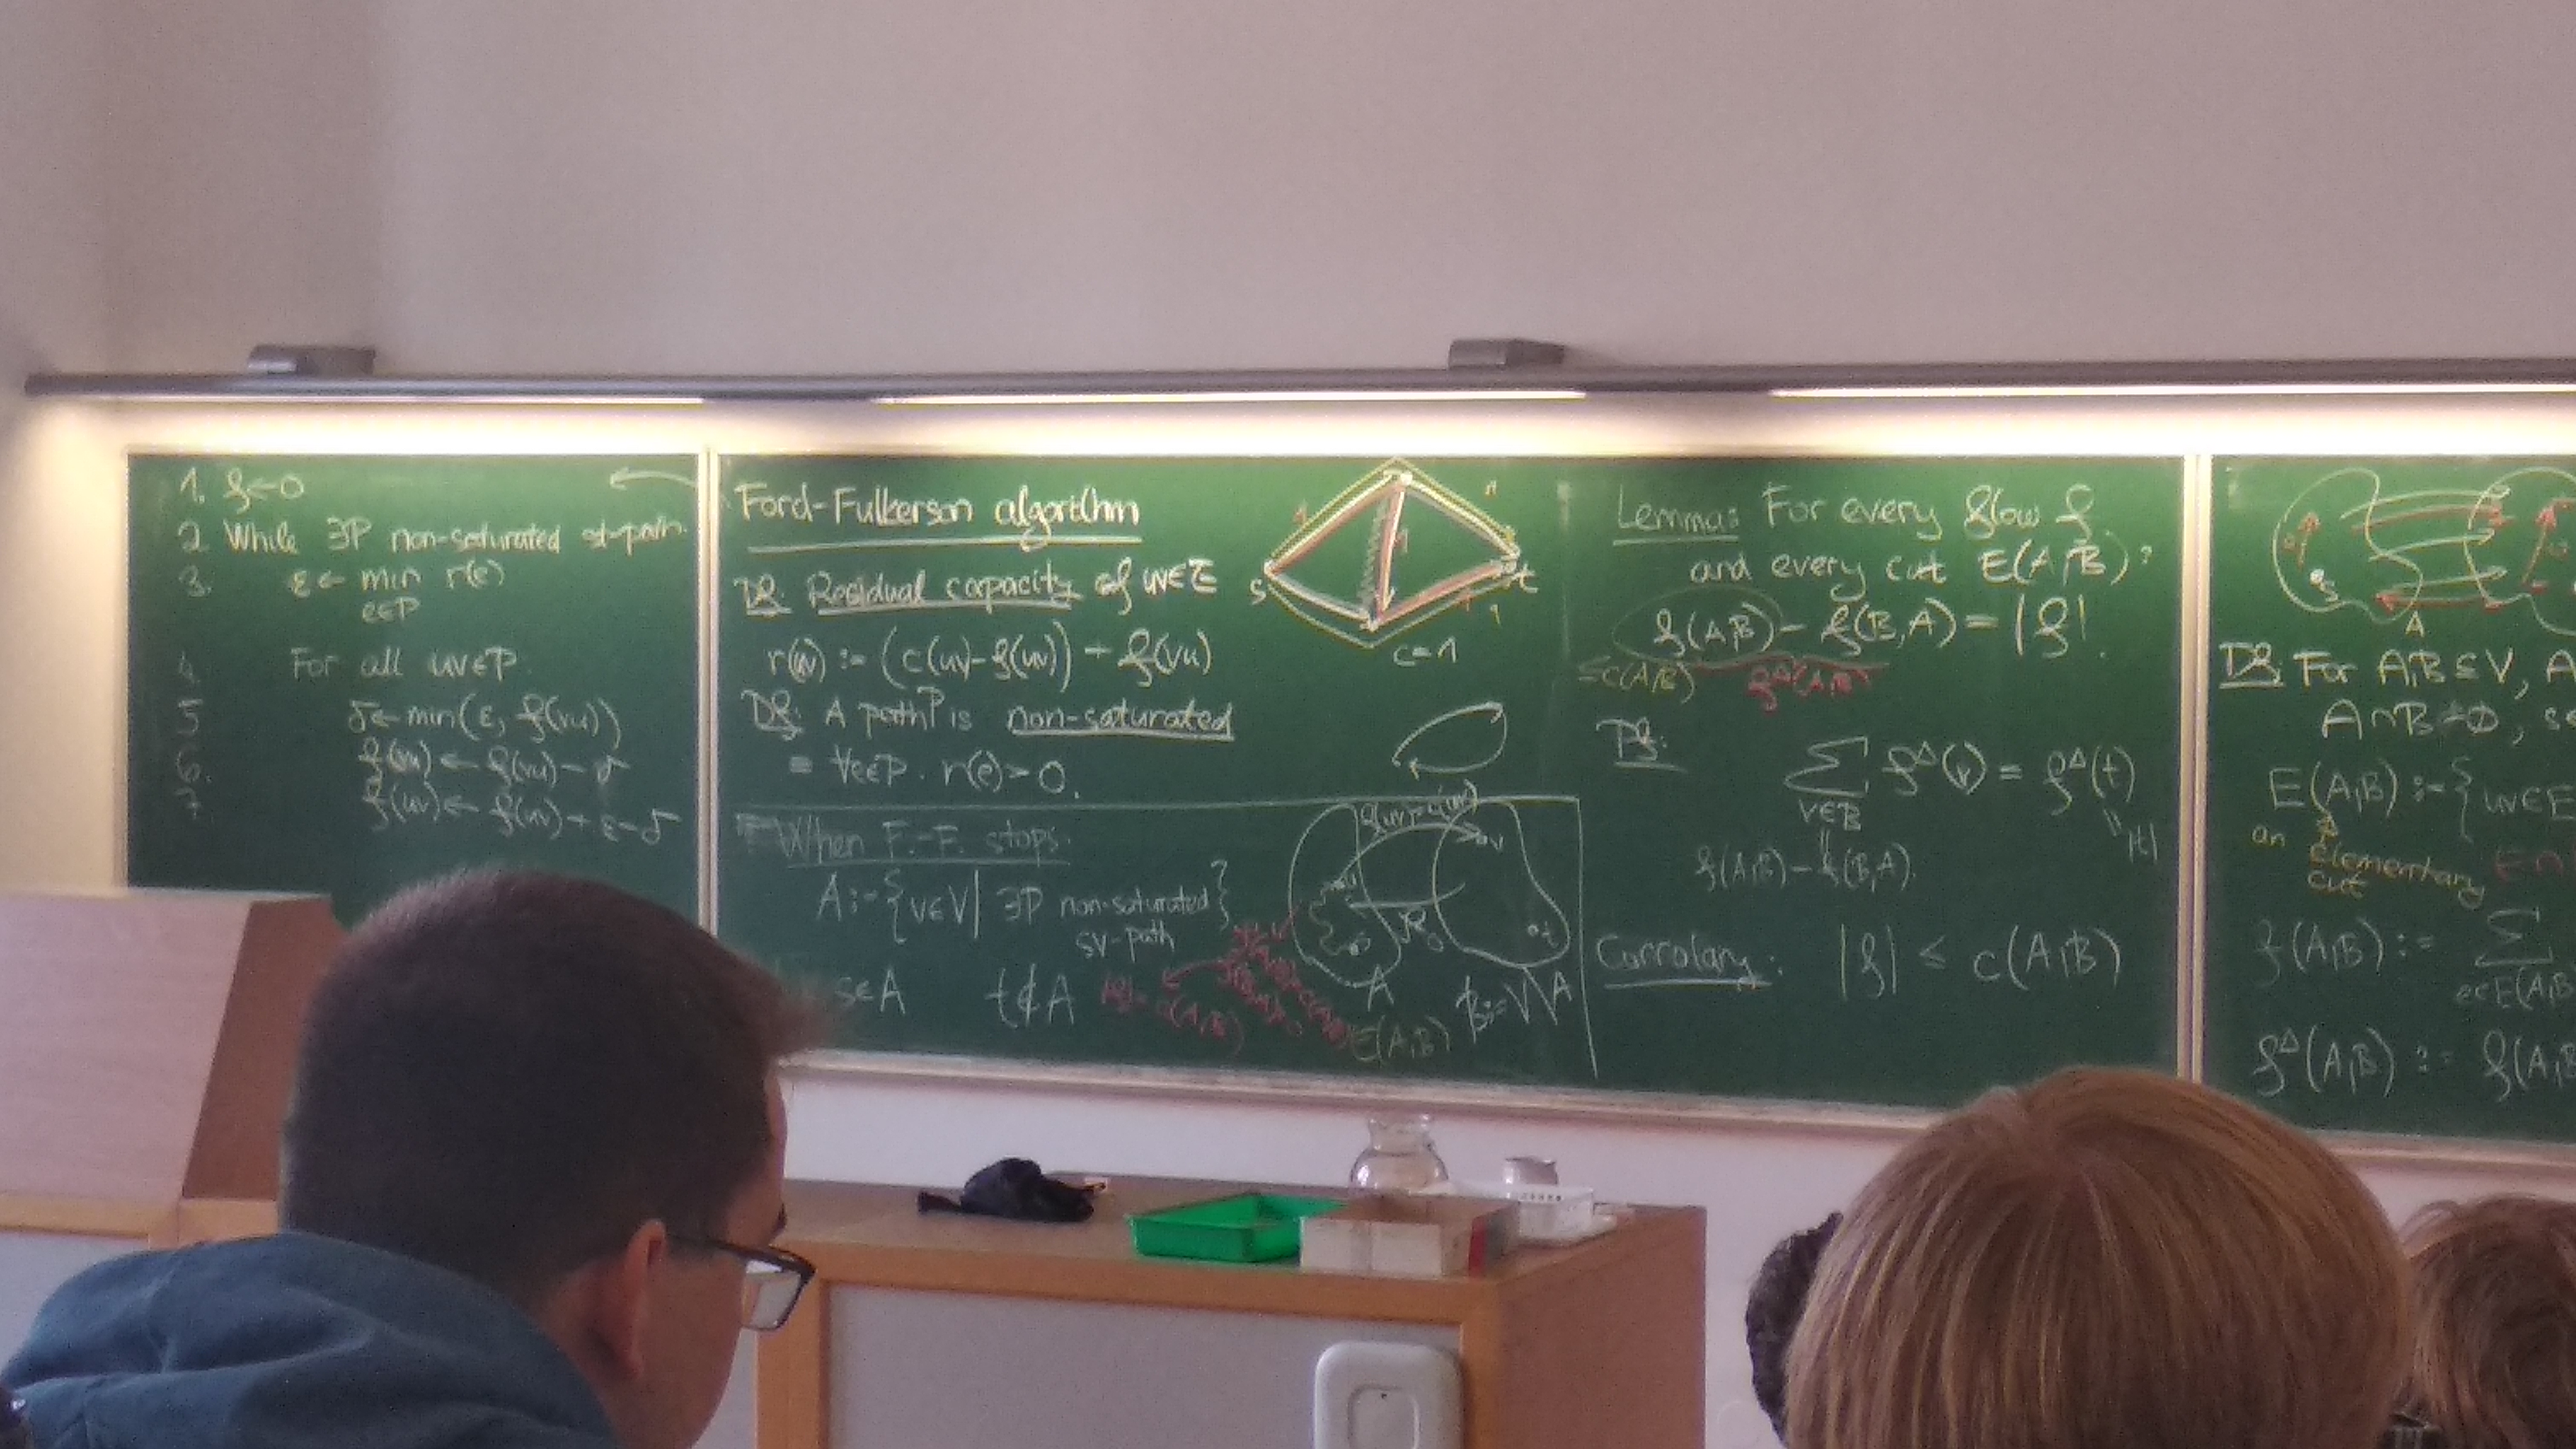 1. f ← 0
2. While ∃P non-saturated st-path:
3. ε ← min r(e)
e∈P
4. For all uv∈P:
5 δ ← min(ε, f(vu))
6. f(vu) ← f(vu) - δ
7 f(uv) ← f(uv) + ε - δ
Ford-Fulkerson algorithm
Df: Residual capacity of uv∈E
r(uv) := (c(uv) - f(uv)) + f(vu)
Df: A path P is non-saturated
≡ ∀e∈P: r(e) > 0.
1
1
1
1
1
s
t
c=1
When F.-F. stops:
A := {v∈V | ∃P non-saturated
sv-path}
s∈A t∉A
|f| = c(A,B)
s
t
A
B := V\A
E(A,B)
Lemma: For every flow f
and every cut E(A,B):
f(A,B) - f(B,A) = |f|.
≤c(A,B) f^Δ(A,B)
Pf:
∑ f^Δ(v) = f^Δ(t)
v∈B
f(A,B) - f(B,A).
Corrolary: |f| ≤ c(A,B)
s
A
Df: For A,B ⊆ V, A
A∩B=∅, s
E(A,B) := {uv∈E
an elementary
cut
f(A,B) := ∑
e∈E(A,B
f^Δ(A,B) := f(A,B